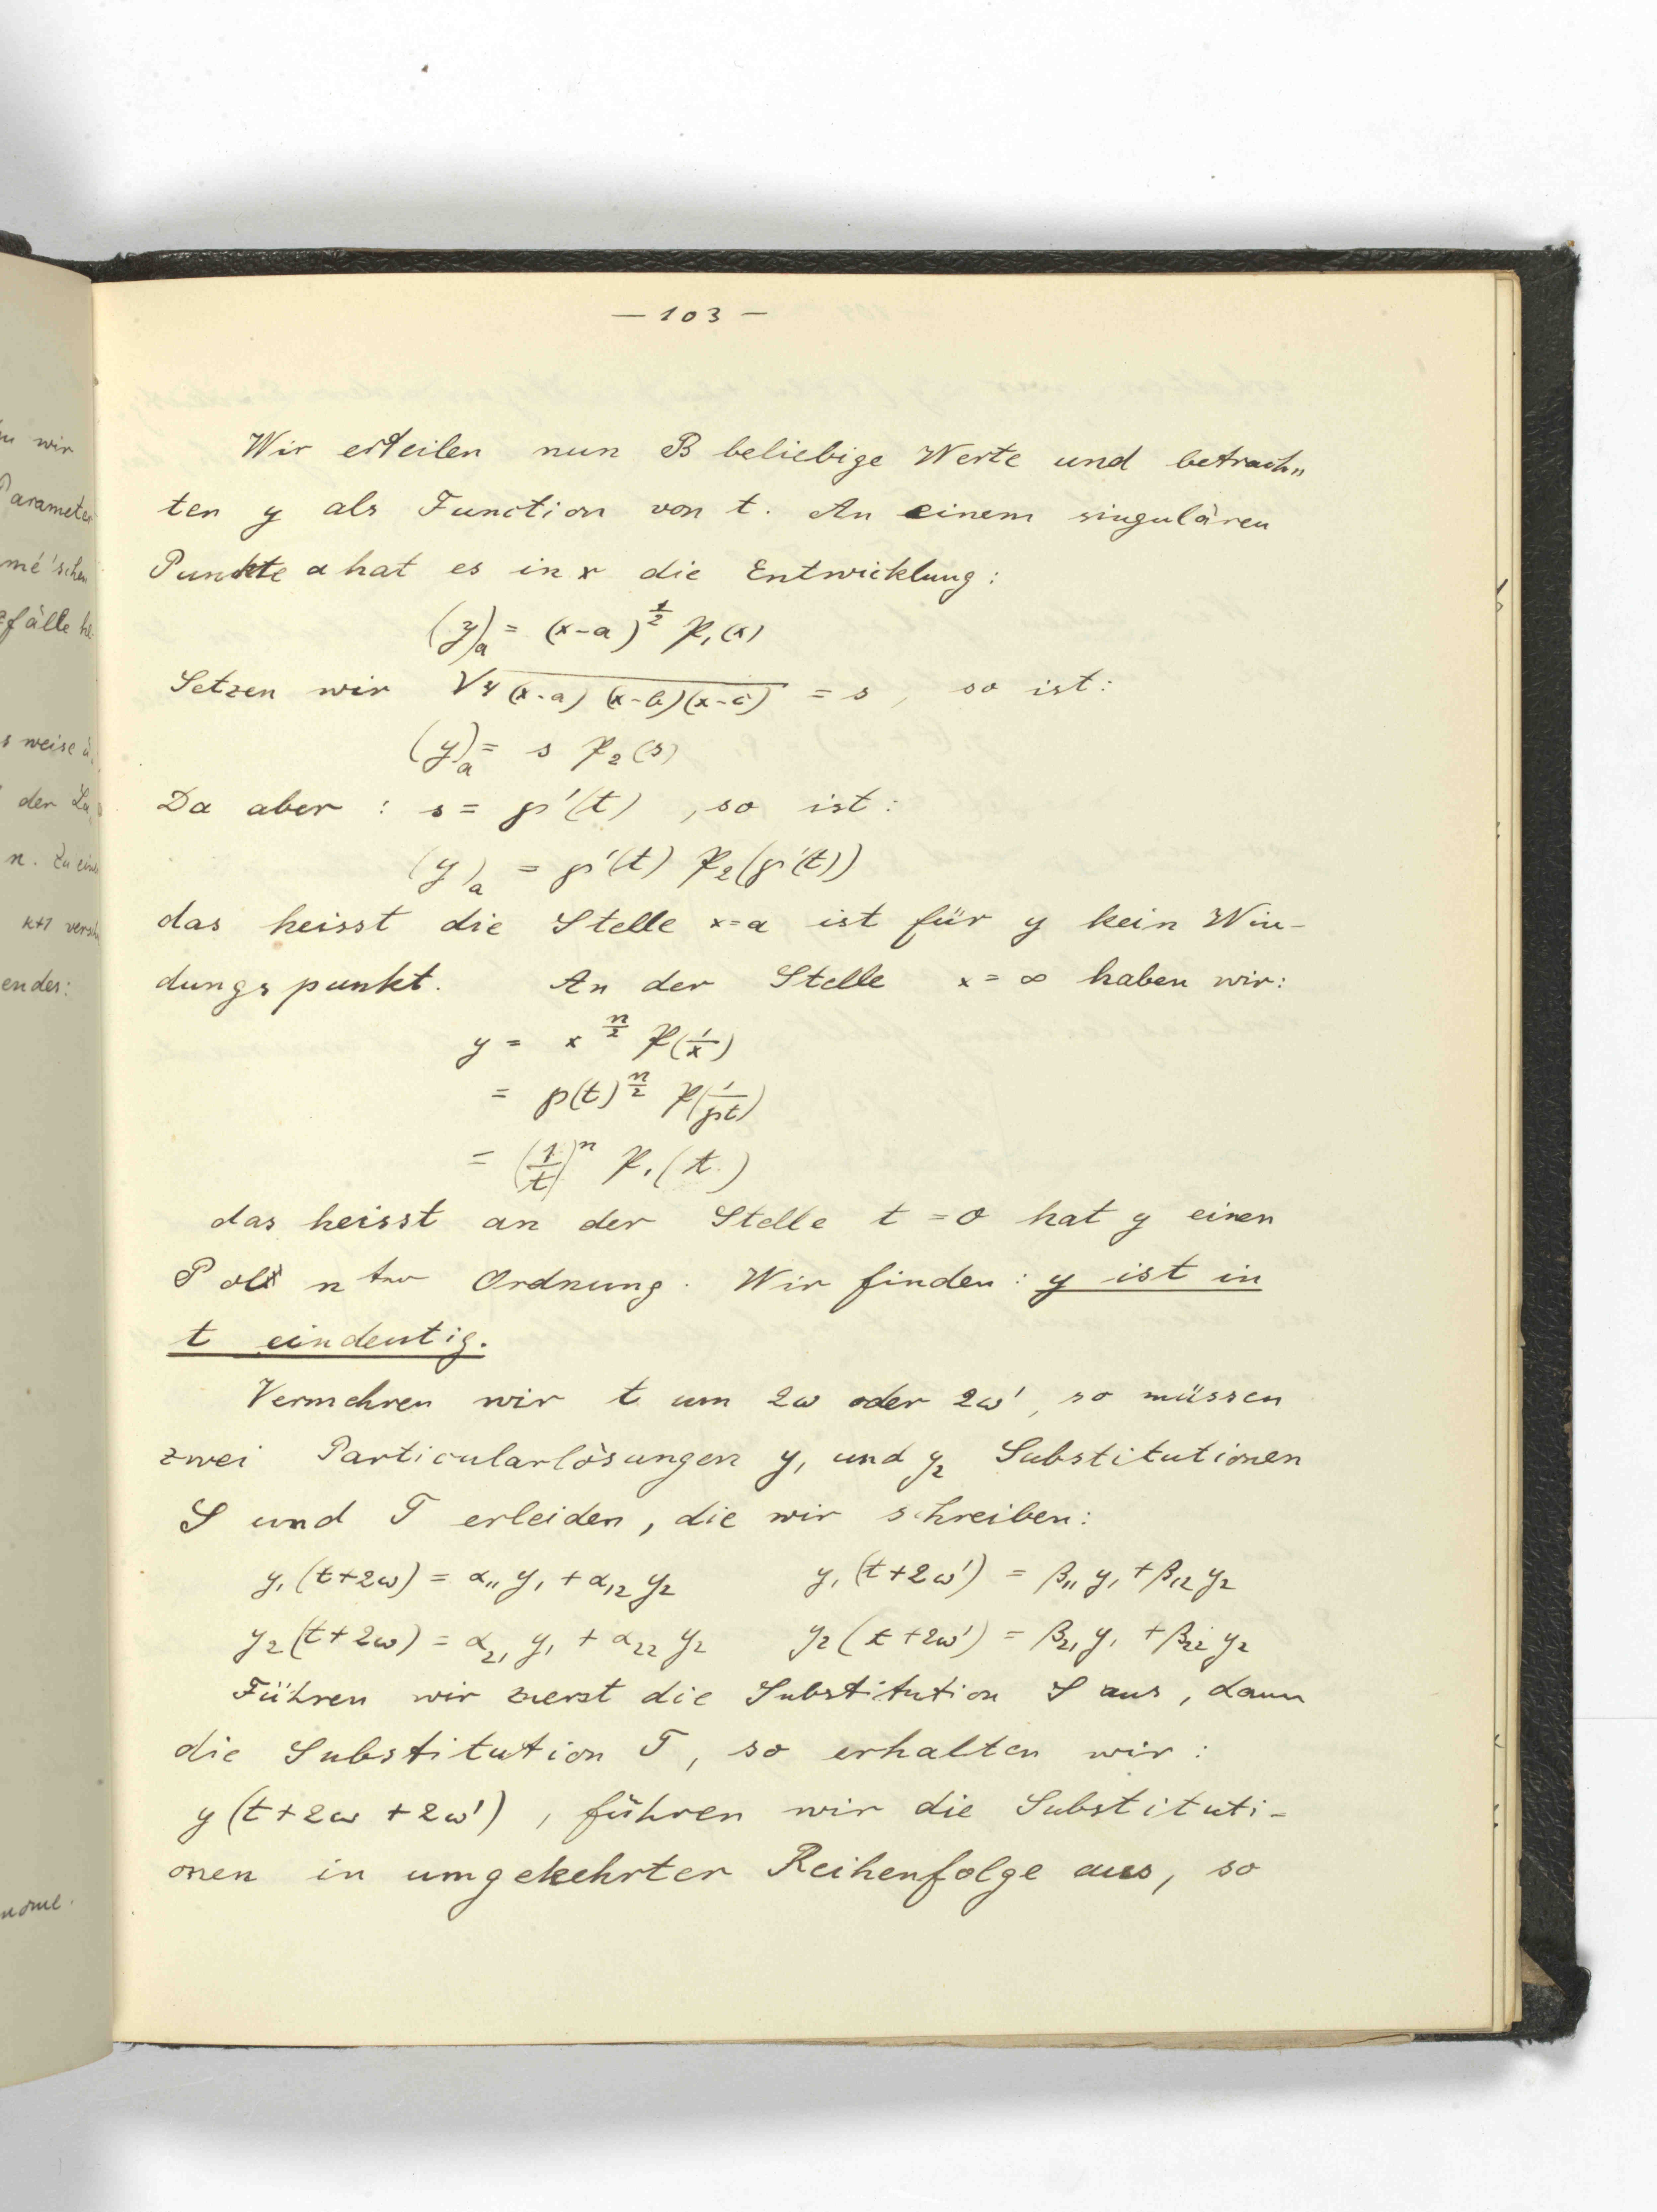 — 103 —
Wir erteilen nun B beliebige Werte und betrach„
ten y als Function von t. An einem singulären
Punkte a hat es in x die Entwicklung:
(y)ₐ = (x-a)^½ 𝔓₁(x)
Setzen wir √4(x-a)(x-b)(x-c) = s, so ist:
(y)ₐ = s 𝔓₂(s)
Da aber : s = ℘'(t) , so ist:
(y)ₐ = ℘'(t) 𝔓₂(℘'(t))
das heisst die Stelle x=a ist für y kein Win-
dungspunkt. An der Stelle x = ∞ haben wir:
y = x^(n/2) 𝔓(1/x)
= ℘(t)^(n/2) 𝔓(1/℘t)
= (1/t)^n 𝔓₁(t)
das heisst an der Stelle t = 0 hat y einen
Pol n ter Ordnung. Wir finden: y ist in
t eindeutig.
Vermehren wir t um 2ω oder 2ω', so müssen
zwei Particularlösungen y₁ und y₂ Substitutionen
S und T erleiden, die wir schreiben:
y₁(t+2ω) = α₁₁ y₁ + α₁₂ y₂ y₁(t+2ω') = β₁₁ y₁ + β₁₂ y₂
y₂(t+2ω) = α₂₁ y₁ + α₂₂ y₂ y₂(t+2ω') = β₂₁ y₁ + β₂₂ y₂
Führen wir zuerst die Substitution S aus, dann
die Substitution T, so erhalten wir :
y(t+2ω+2ω') , führen wir die Substituti-
onen in umgekehrter Reihenfolge aus, so